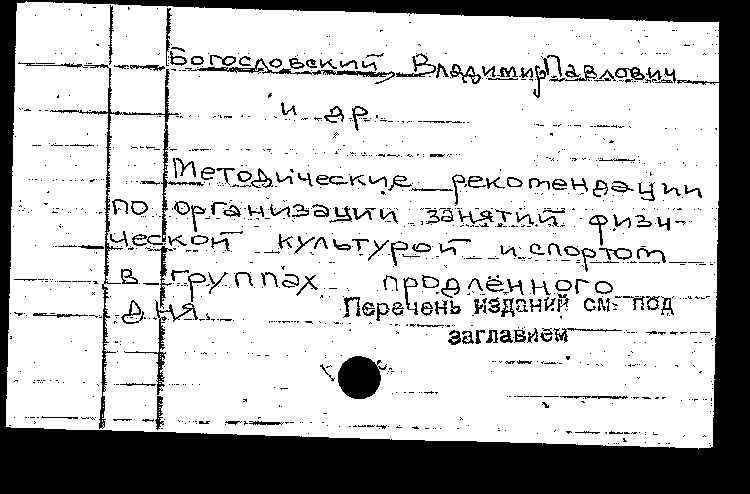 Богословский, Владимир Павлович
и др.
Методические рекомендации
по организации занятий физи-
ческой культурой и спортом
в группах продлённого
дня.
Перечень изданий см. под
заглавием